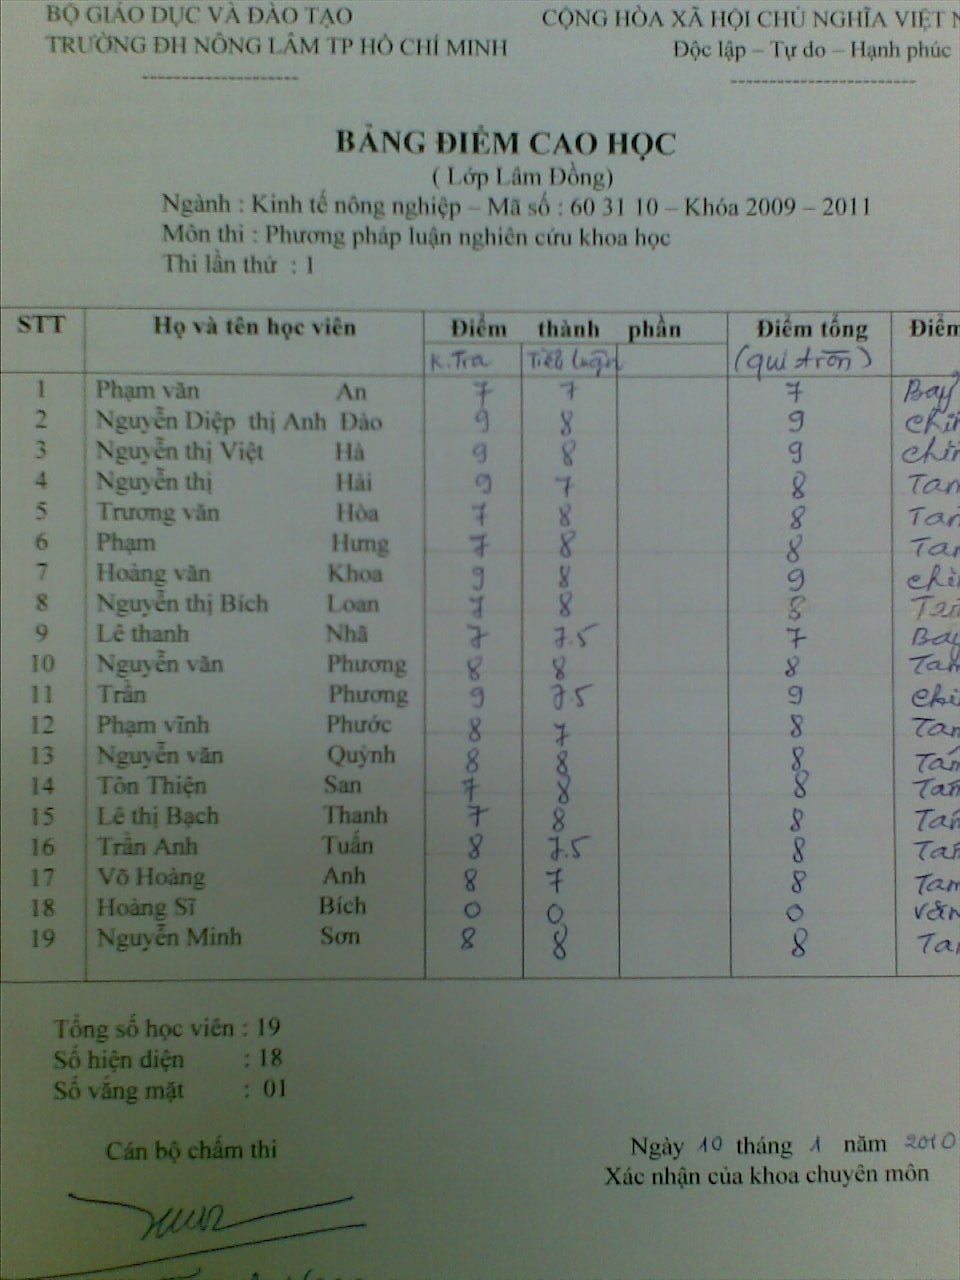 BỘ GIÁO DỤC VÀ ĐÀO TẠO CỘNG HÒA XÃ HỘI CHỦ NGHĨA VIỆT N
TRƯỜNG ĐH NÔNG LÂM TP HỒ CHÍ MINH Độc lập – Tự do – Hạnh phúc
BẢNG ĐIỂM CAO HỌC
( Lớp Lâm Đồng)
Ngành : Kinh tế nông nghiệp – Mã số : 60 31 10 – Khóa 2009 – 2011
Môn thi : Phương pháp luận nghiên cứu khoa học
Thi lần thứ : 1
STT Họ và tên học viên Điểm thành phần Điểm tổng Điểm
K.Tra Tiểu luận (qui tròn)
1 Phạm văn An 7 7 7 Bảy
2 Nguyễn Diệp thị Anh Đào 9 8 9 chín
3 Nguyễn thị Việt Hà 9 8 9 chín
4 Nguyễn thị Hải 9 7 8 Tám
5 Trương văn Hòa 7 8 8 Tám
6 Phạm Hưng 7 8 8 Tám
7 Hoàng văn Khoa 9 8 9 chín
8 Nguyễn thị Bích Loan 7 8 8 Tám
9 Lê thanh Nhã 7 7.5 7 Bảy
10 Nguyễn văn Phương 8 8 8 Tám
11 Trần Phương 9 7.5 9 chín
12 Phạm vĩnh Phước 8 7 8 Tám
13 Nguyễn văn Quỳnh 8 8 8 Tám
14 Tôn Thiện San 7 8 8 Tám
15 Lê thị Bạch Thanh 7 8 8 Tám
16 Trần Anh Tuấn 8 7.5 8 Tám
17 Võ Hoàng Anh 8 7 8 Tám
18 Hoàng Sĩ Bích 0 0 0 vắn
19 Nguyễn Minh Sơn 8 8 8 Tám
Tổng số học viên : 19
Số hiện diện : 18
Số vắng mặt : 01
Cán bộ chấm thi Ngày 10 tháng 1 năm 2010
Xác nhận của khoa chuyên môn